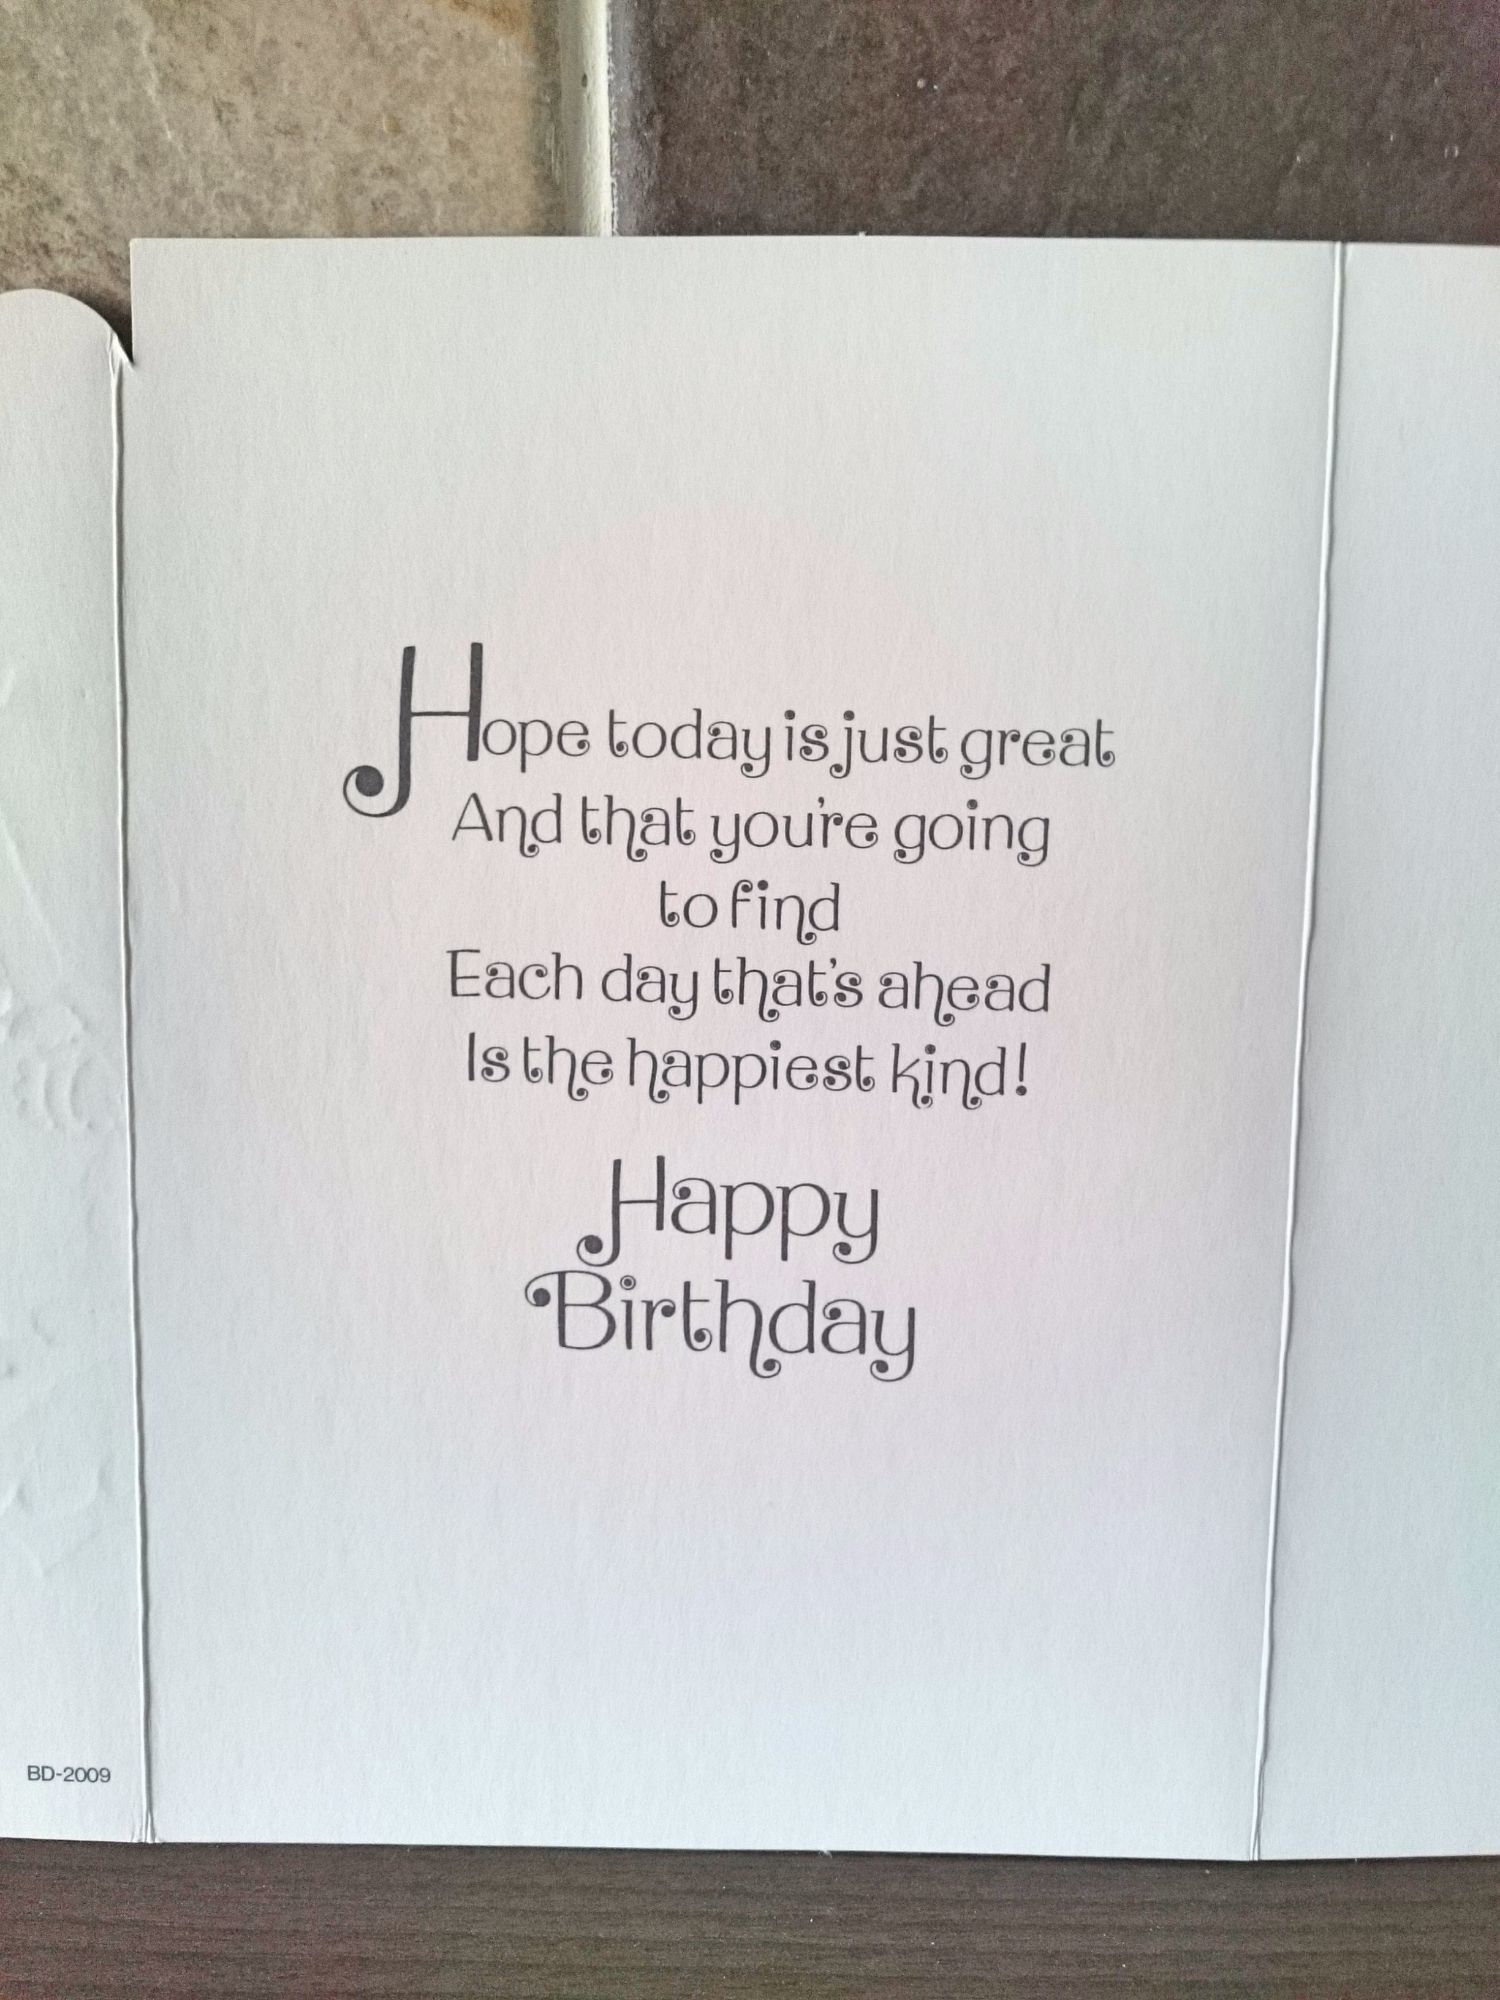 Hope today is just great
And that you're going
to find
Each day that's ahead
Is the happiest kind!
Happy
Birthday
BD-2009